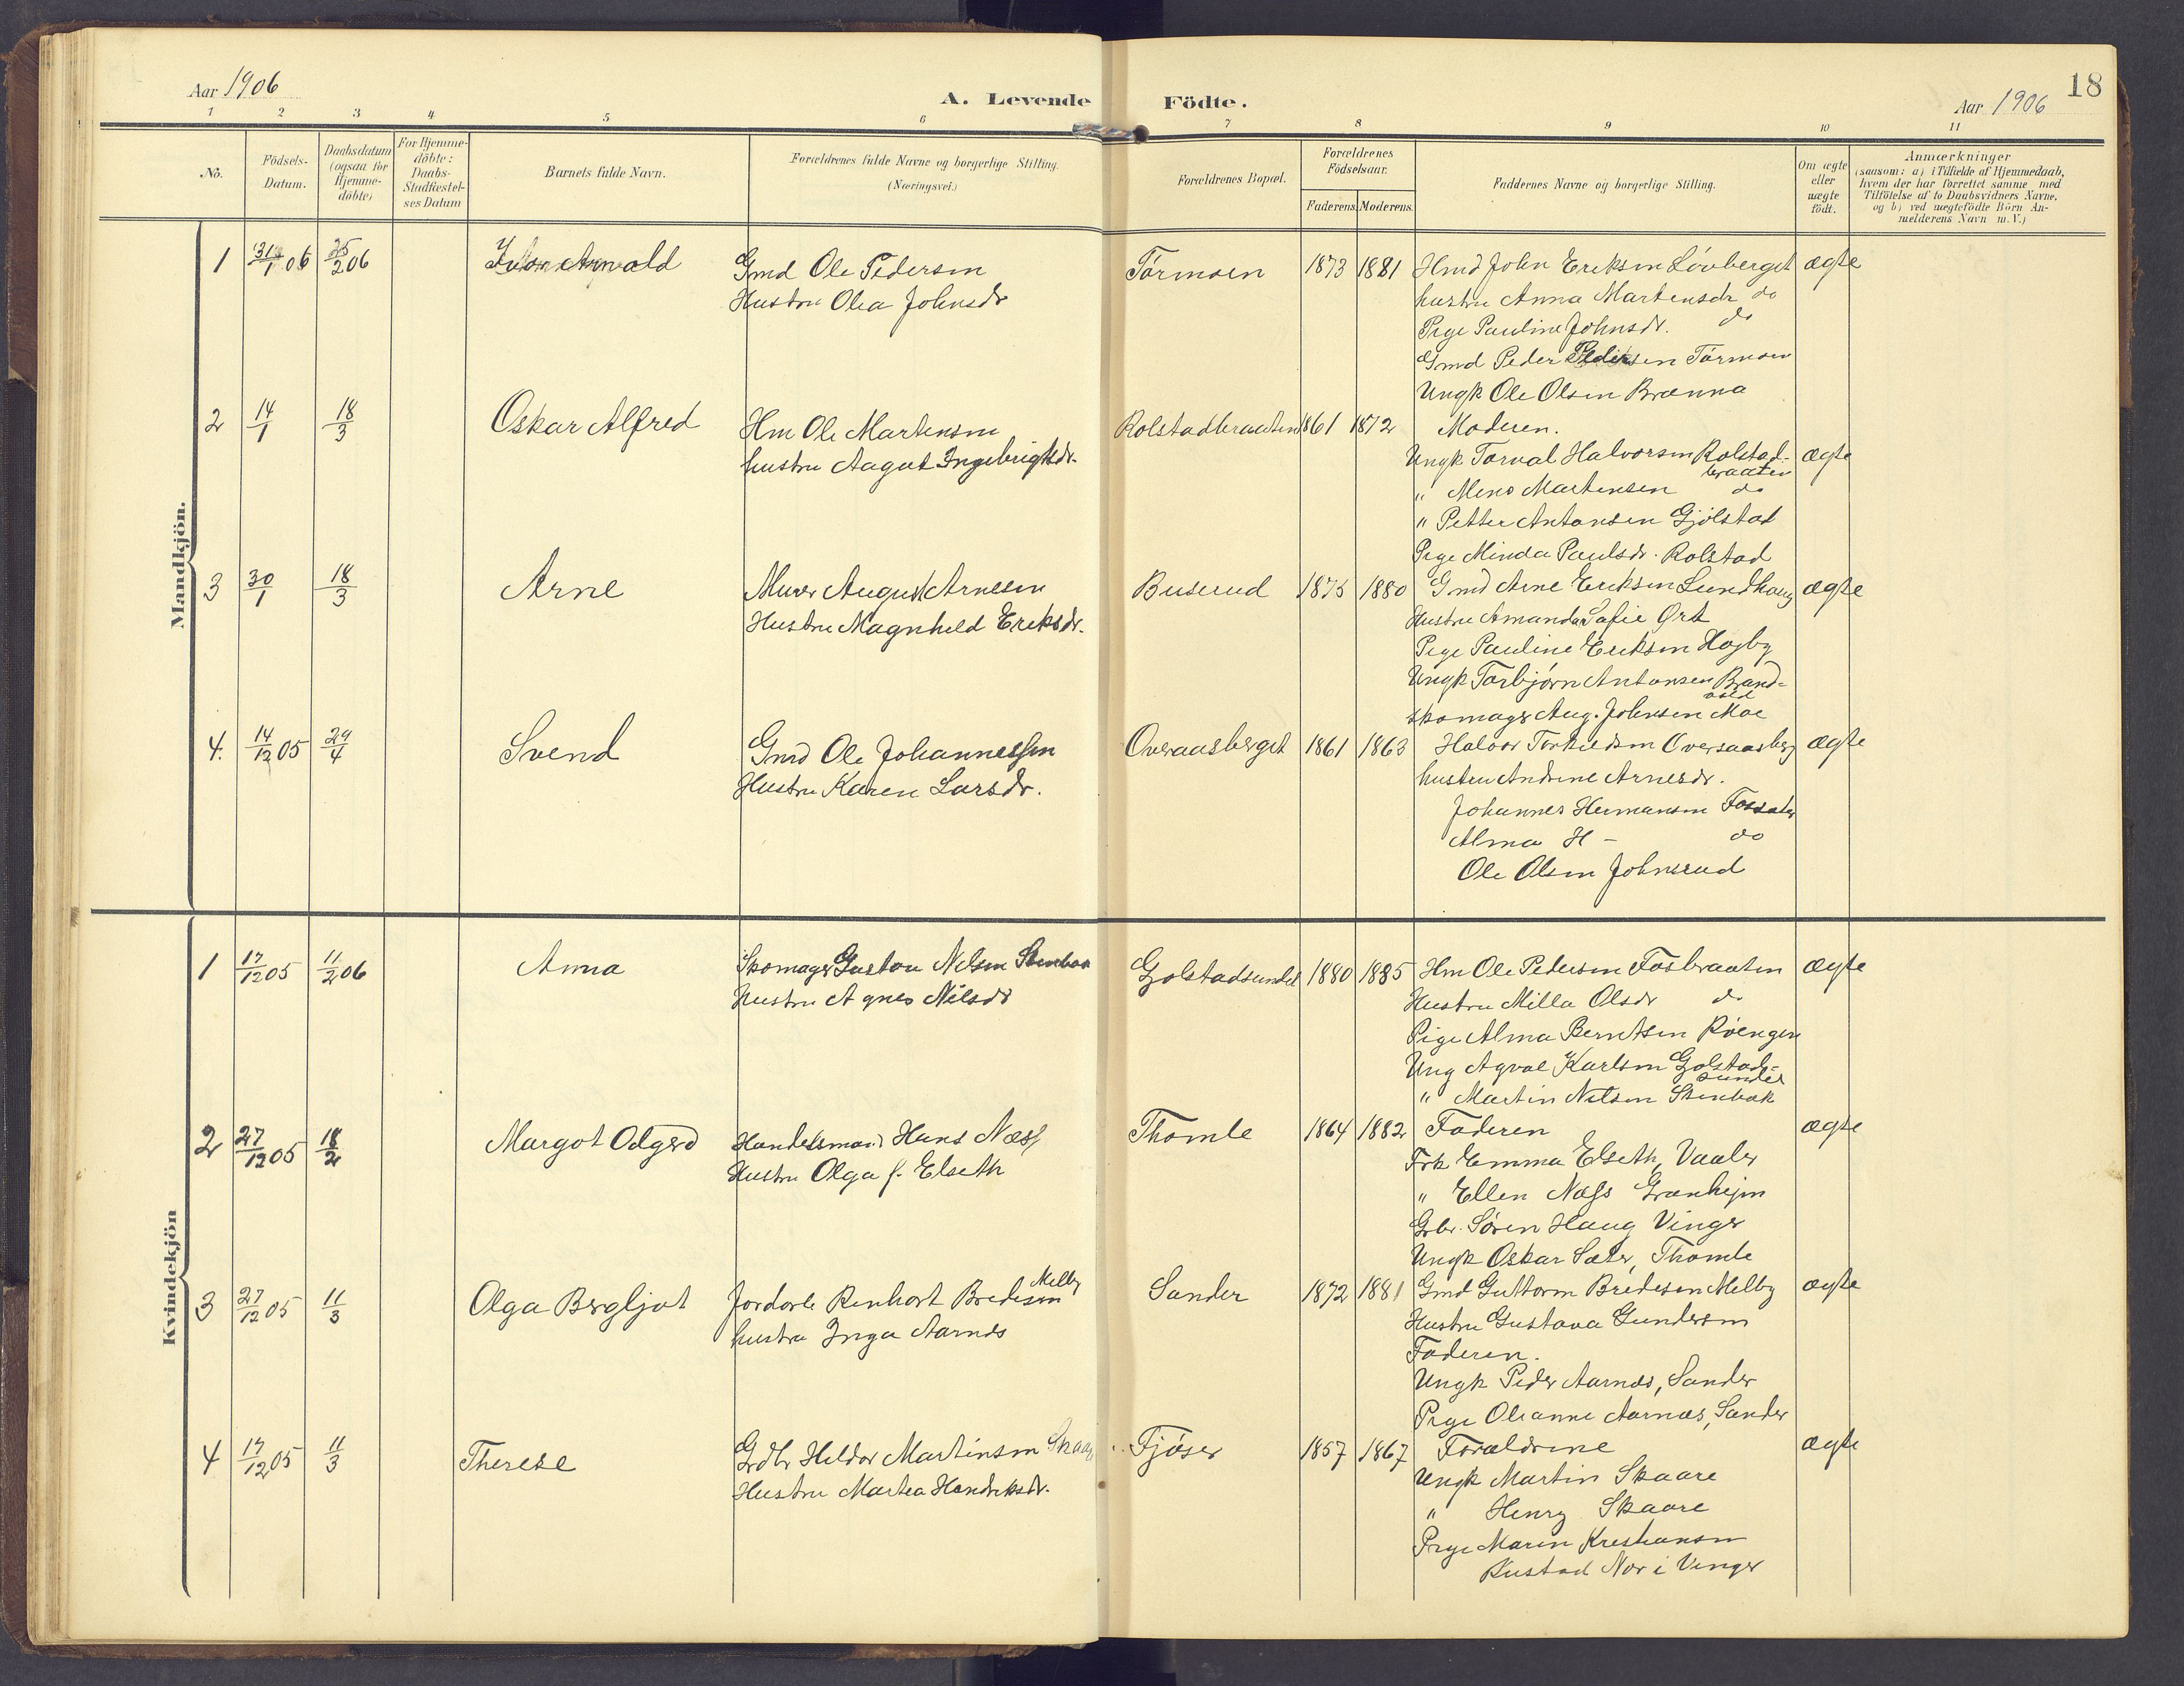 Aar 1906
A. Levende Födte.
Aar 1906
18
1 2 3 4 5 6 7 8 9 10 11
No.
Födsels-Datum.
Daabsdatum (ogsaa for Hjemme-döbte)
For Hjemme-döbte: Daabs-Stadfæstel-ses Datum
Barnets fulde Navn.
Forældrenes fulde Navne og borgerlige Stilling. (Næringsvei.)
Forældrenes Bopæl.
Forældrenes Födselsaar.
Faderens. Moderens.
Faddernes Navne og borgerlige Stilling.
Om ægte eller uægte födt.
Anmærkninger
(saasom: a) i Tilfælde af Hjemmedaab,
hvem der har forrettet samme med
Tilföielse af to Daabsvidners Navne,
og b) ved uægtefödte Börn An-
melderens Navn m.V.)
Mandkjön.
1 31/1 06 25/2 06 Arnold Gmd Ole Pedersen Törmoen 1873 1881 Hmd John Eriksen Lövberget ægte
Hustru Olea Johnsdr
hustru Anna Martensdr do
Pige Pauline Johnsdr. do
Gmd Peder Pedersen Törmoen
Ungk Ole Olsen Brænna
2 14/1 18/3 Oskar Alfred Hm Ole Martensen Rolstadbraaten 1861 1872 Moderen.
hustru Aagot Ingebrigtsdr.
Ungk Torval Halvorsen Rolstad- ægte
braaten
" Mens Martensen do
" Petter Antonsen Gjölstad
Pige Minda Paulsdr. Rolstad
3 30/1 18/3 Arne Murer August Arnesen Buserud 1875 1880 Gmd Arne Eriksen Lundhaug ægte
Hustru Magnhild Eriksdr.
Hustru Amanda Sofie Ørt
Pige Pauline Eriksen Høgby
Ungk Torbjörn Antonsen Brand-
vold
Skomager Aug. Johnsen Moe
4. 14/12 05 29/4 Svend Gmd Ole Johannessen Overaasberget 1861 1863 Halvor Torkildsen Overaasberg ægte
Hustru Karen Larsdr.
hustru Andrine Arnesdr.
Johannes Hermansen Fossater
Alma H - do
Ole Olsen Johnsrud
Kvindekjön
1 17/12 05 11/2 06 Anna Skomager Gustav Nilsen Stenbak Gjolstadsundet 1880 1885 Hm Ole Pedersen Fosbraaten ægte
Hustru Agnes Nilsdr
Hustru Milla Olsdr do
Pige Alma Berntsen Röengen
Ung Agval Karlsen Golstad-
sundet
" Martin Nilsen Stenbak
2 27/12 05 18/2 Margot Odgerd Handelsmand Hans Næss Thomle 1864 1882 Faderen ægte
Hustru Olga f. Elseth
Frk Emma Elseth, Vaaler
" Ellen Næss Granheim
Gbr. Sören Haug Vinger
Ungk Oskar Sæter, Thomle
3 27/12 05 11/3 Olga Bergljot Jordarb Renhart Bredesen Melby Sander 1872 1881 Gmd Guttorm Bredesen Melby ægte
hustru Inga Aarnes
Hustru Gustava Gundersen
Faderen.
Ungk Peder Aarnæs, Sander
Pige Oleanne Aarnæs, Sander
4 17/12 05 11/3 Therese Grdbr Heldor Martinsen Skaare Fjøser 1857 1867 Forældrene ægte
Hustru Martea Hendriksdr.
Ungk Martin Skaare
" Henry Skaare
Pige Maren Kristiansen
Rustad Nor i Vinger